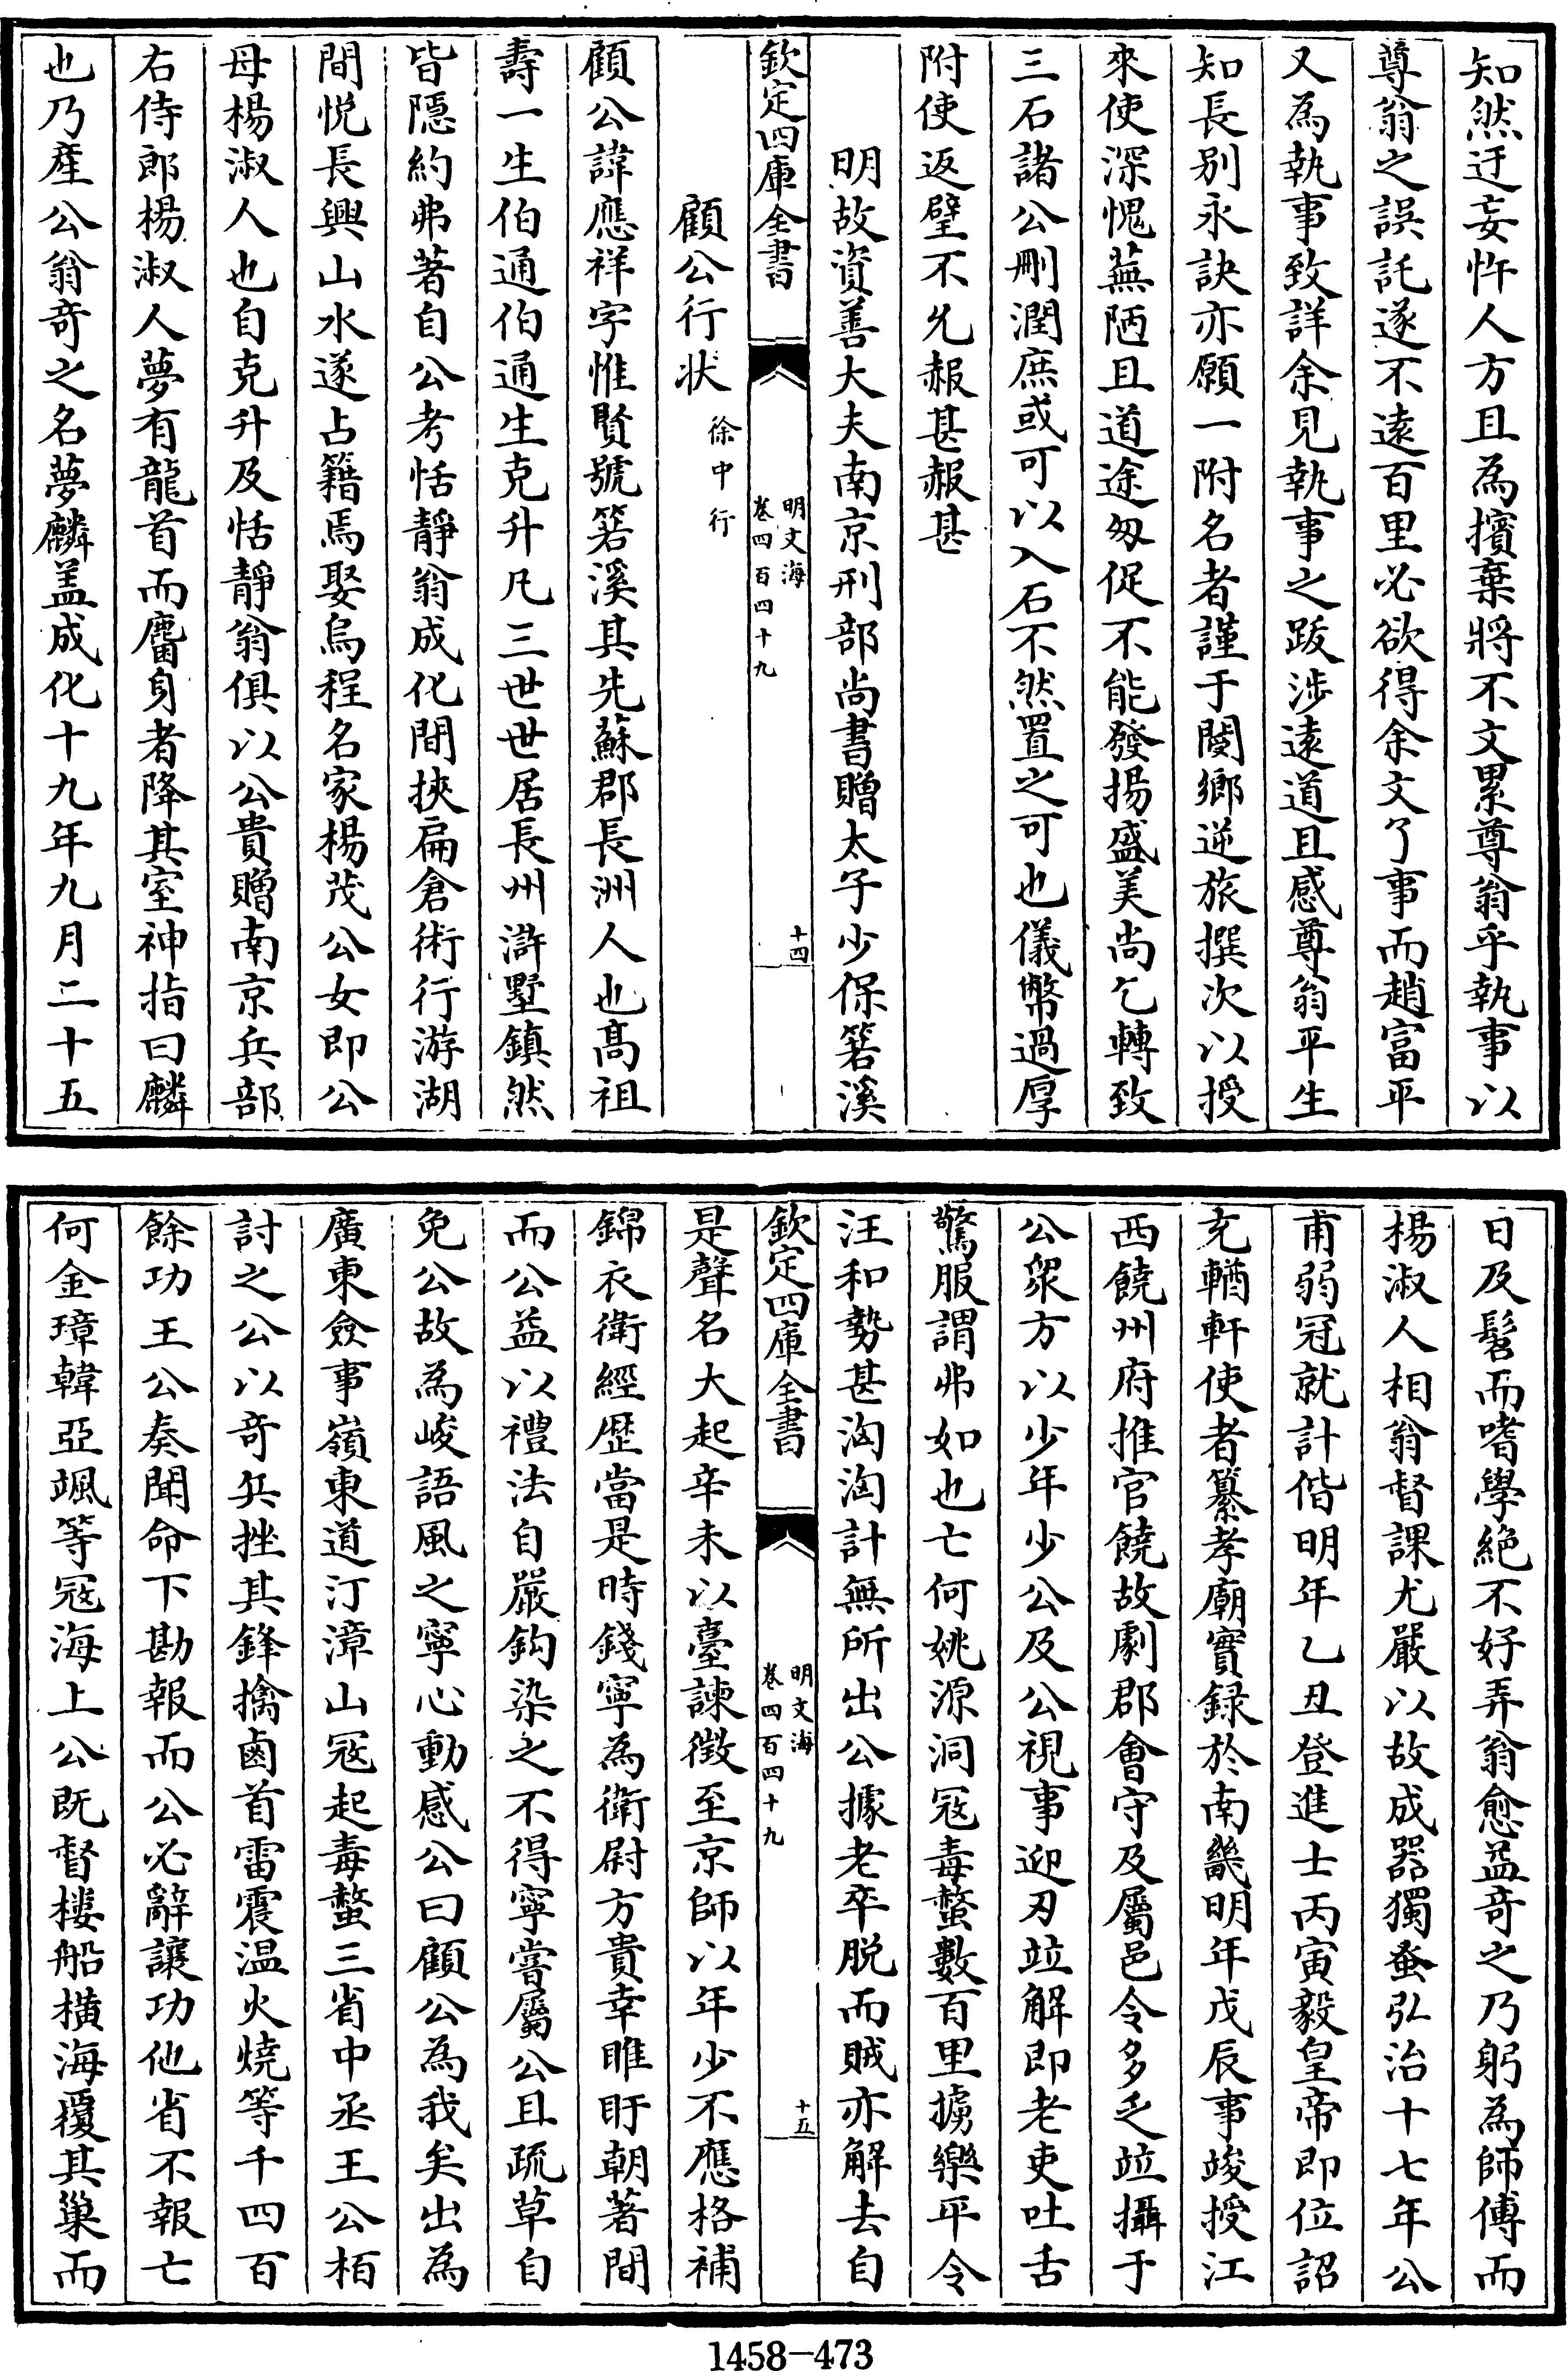 知然迂妄忤人方且為擯棄將不文累尊翁乎執事以
尊翁之誤託遂不遠百里必欲得余文了事而趙富平
又為執事致詳余見執事之跋涉遠道且感尊翁平生
知長别永訣亦願一附名者謹于閿鄉逆旅撰次以授
來使深愧蕪陋且道途匆促不能發揚盛美尚乞轉致
三石諸公刪潤庶或可以入石不然置之可也儀幣過厚
附使返璧不允赧甚赧甚
明故資善大夫南京刑部尚書贈太子少保箬溪
欽定四庫全書
明文海
卷四百四十九
十四
顧公行状
徐中行
顧公諱應祥字惟賢號箬溪其先蘇郡長洲人也髙祖
壽一生伯通伯通生克升凡三世世居長州滸墅鎮然
皆隱約弗著自公考恬靜翁成化間挾扁倉術行游湖
間悦長興山水遂占籍焉娶烏程名家楊茂公女即公
母楊淑人也自克升及恬靜翁俱以公貴贈南京兵部
右侍郎楊淑人夢有龍首而麕身者降其室神指曰麟
也乃產公翁奇之名夢麟盖成化十九年九月二十五
日及髫而嗜學絶不好弄翁愈益奇之乃躬為師傅而
楊淑人相翁督課尤嚴以故成器獨蚤弘治十七年公
甫弱冠就計偕明年乙丑登進士丙寅毅皇帝即位詔
充輶軒使者纂孝廟實録於南畿明年戊辰事竣授江
西饒州府推官饒故劇郡會守及屬邑令多乏竝攝于
公衆方以少年少公及公視事迎刃竝解即老吏吐舌
驚服謂弗如也亡何姚源洞冦毒螫數百里掳樂平令
汪和勢甚洶洶計無所出公據老卒脱而賊亦解去自
欽定四庫全書
明文海
卷四百四十九
十五
是聲名大起辛未以臺諫徴至京師以年少不應格補
錦衣衛經歴當是時錢寧為衛尉方貴幸睢盱朝著間
而公益以禮法自嚴鈎染之不得寧嘗屬公且疏草自
免公故為峻語風之寧心動感公曰顧公為我矣出為
廣東僉事嶺東道汀漳山冦起毒螫三省中丞王公栢
討之公以奇兵挫其鋒擒鹵首雷震温火燒等千四百
餘功王公奏聞命下勘報而公必辭讓功他省不報亡
何金璋韓亞颯等冦海上公既督樓船横海覆其巢而
1458-473